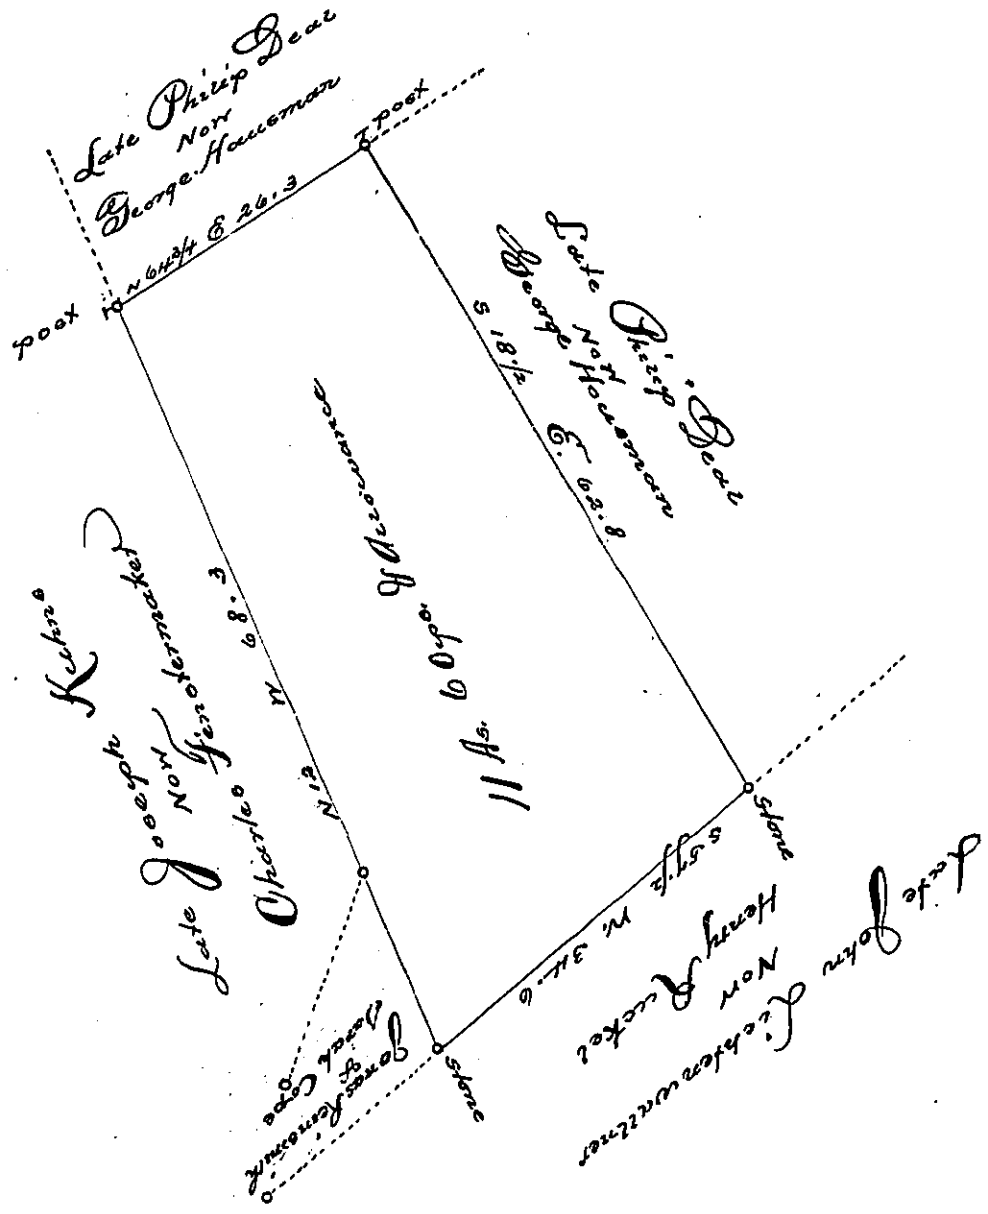 Late Philip Deal
Now
George Hausman
post
N 64 3/4 E 26.3
post
Late Philip Deal
Now
George Housman
S 18 1/2 E. 62.8
11 As. 90 ps. & Allowance
N 12 W 68.3
Late Joseph Kuhns
Now
Charles Fenstermaker
stone
S 57 1/2 W. 34.6
stone
Late John Lichtenwallner
Now
Henry Ruckel
Jonas
&
Sarah Cope